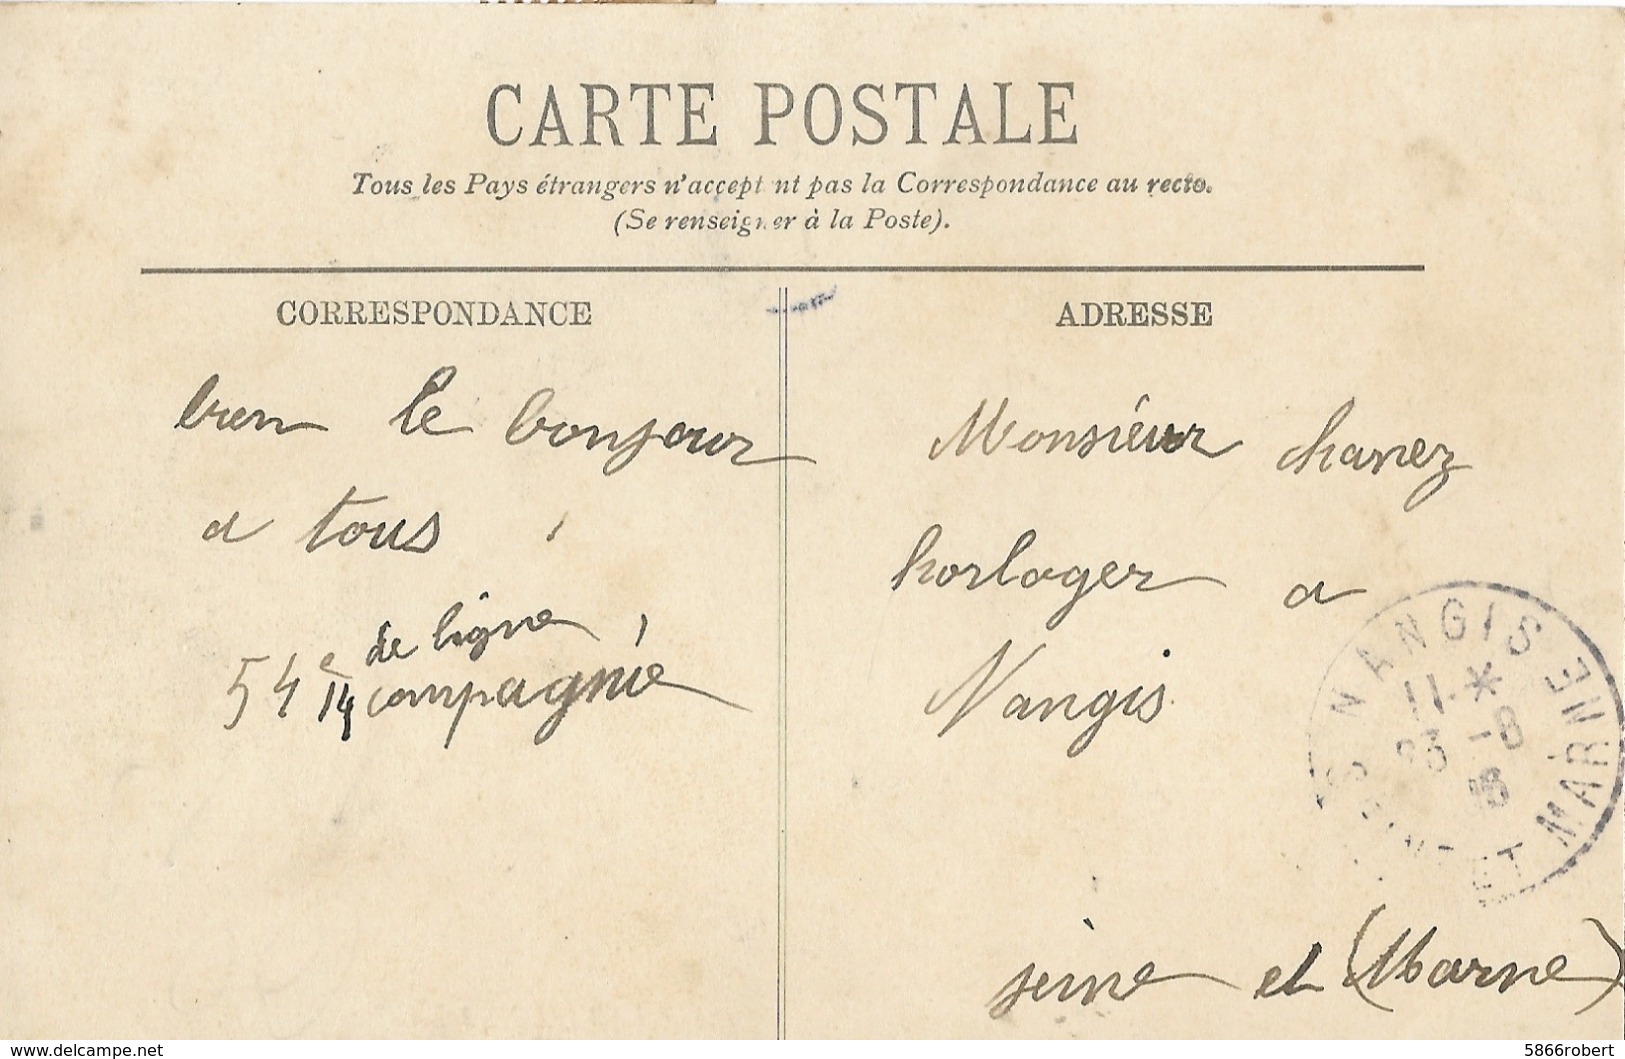 CARTE POSTALE
Tous les Pays étrangers n'accept nt pas la Correspondance au recto.
(Se renseigner à la Poste).
CORRESPONDANCE
bien le bonjour
a tous
54e de ligne
14 compagnie
ADRESSE
Monsieur chanez
horloger a
Nangis
seine et (Marne)
NANGIS
SEINE ET MARNE
11 *
23 -8
www.delcampe.net
5866robert